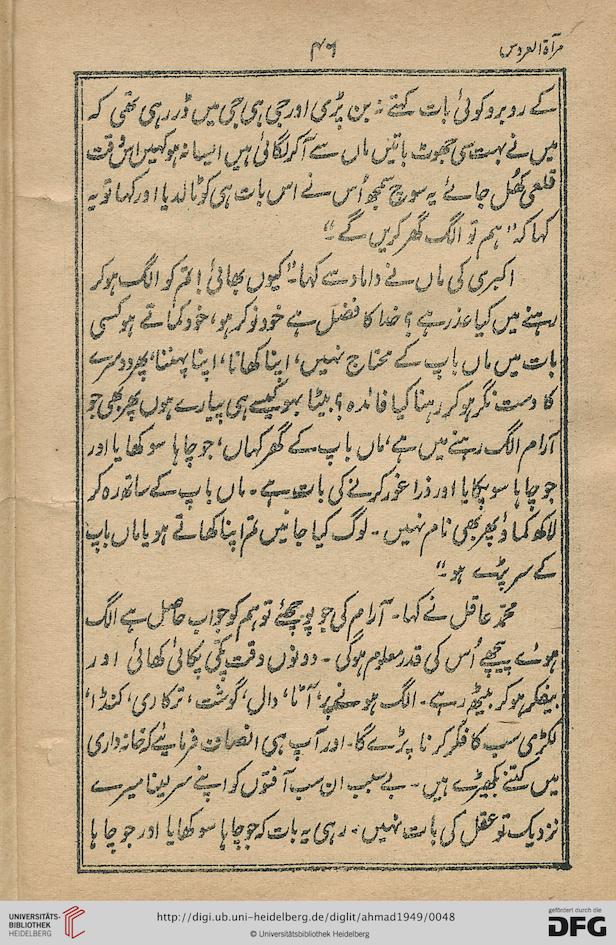 مرآۃ العروس
۴۶
کے روبرو کوئی بات کہتے نہ بن پڑی اور جی ہی جی میں ڈر رہی تھی کہ
میں نے بہت سی جھوٹ باتیں ماں سے آکر لگائی ہیں ایسا نہ ہو کہیں اس وقت
قلعی کھل جائے یہ سوچ سمجھ اُس نے اس بات ہی کو ٹالدیا اور کہا تو یہ
کہا کہ" ہم تو الگ گھر کریں گے"
اکبری کی ماں نے داماد سے کہا۔"کیوں بھائی! تم کو الگ ہو کر
رہنے میں کیا عذر ہے؟ خدا کا فضل ہے خود نوکر ہو، خود کماتے ہو کسی
بات میں ماں باپ کے محتاج نہیں، اپنا کھانا، اپنا پہننا، پھر دوسرے
کا دست نگر ہو کر رہنا کیا فائدہ؟ بیٹا بہو کیسے ہی پیارے ہوں پھر بھی جو
آرام الگ رہنے میں ہے، ماں باپ کے گھر کہاں، جو چاہا سو کھایا اور
جو چاہا سو پکایا اور ذرا غور کرنے کی بات ہے۔ ماں باپ کے ساتھ رہ کر
لاکھ کماؤ پھر بھی نام نہیں۔ لوگ کیا جانیں تم اپنا کھاتے ہو یا ماں باپ
کے سر پڑے ہو۔"
محمد عاقل نے کہا۔ آرام کی جو پوچھئے تو ہم کو جواب حاصل ہے الگ
ہوے پیچھے اُس کی قدر معلوم ہوگی۔ دونوں وقت پکی پکائی کھائی اور
بیفکر ہو کر بیٹھ رہے۔ الگ ہونے پر، آٹا، دال، گوشت، ترکاری، کنڈا،
لکڑی سب کا فکر کرنا پڑے گا۔ اور آپ ہی انصاف فرمائیے کہ خانہ داری
میں کتنے بکھیڑے ہیں۔ بے سبب ان سب آفتوں کو اپنے سر لینا میرے
نزدیک تو عقل کی بات نہیں۔ رہی یہ بات کہ جو چاہا سو کھایا اور جو چاہا
UNIVERSITÄTS-
BIBLIOTHEK
HEIDELBERG
http://digi.ub.uni-heidelberg.de/diglit/ahmad1949/0048
© Universitätsbibliothek Heidelberg
gefördert durch die
DFG